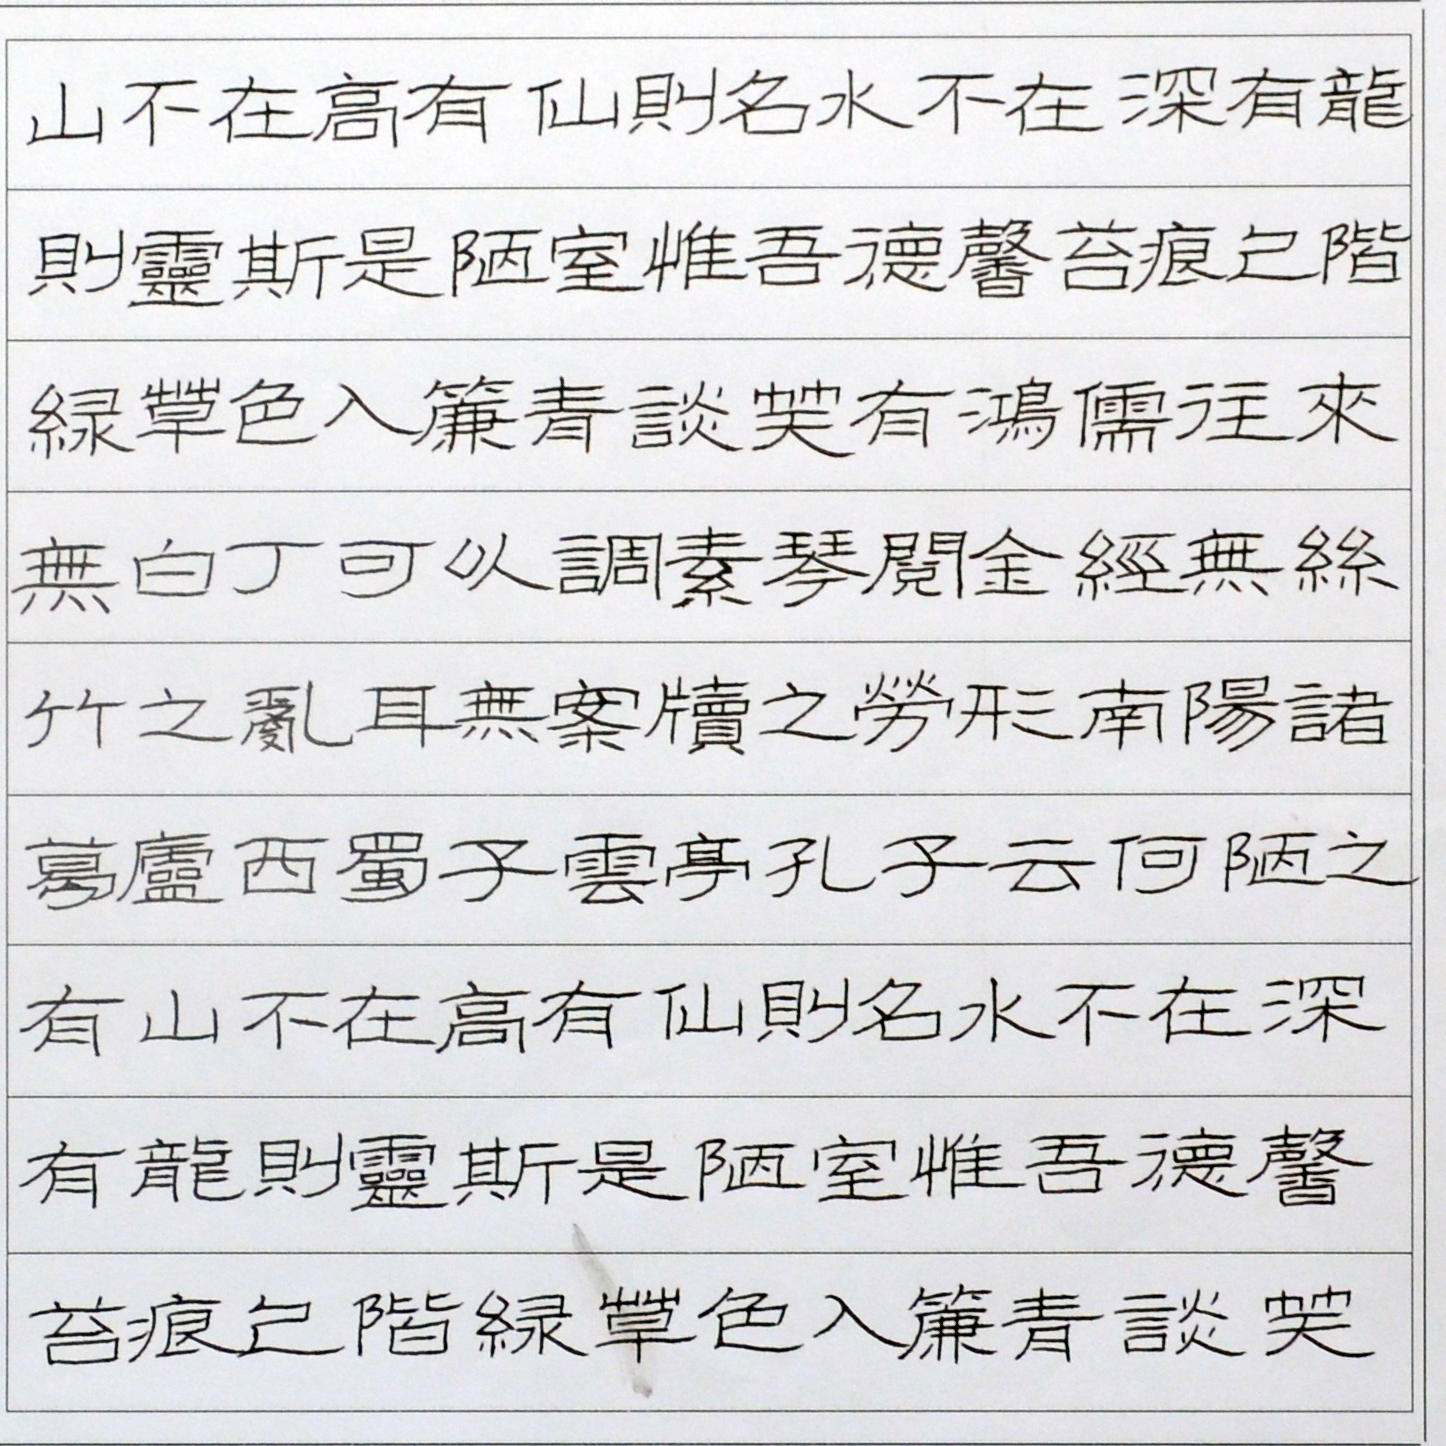 山不在高有仙則名水不在深有龍
則靈斯是陋室惟吾德馨苔痕上階
緑草色入簾青談芺有鴻儒往來
無白丁可以調素琴閱金經無絲
竹之亂耳無案牘之勞形南陽諸
葛廬西蜀子雲亭孔子云何陋之
有山不在高有仙則名水不在深
有龍則靈斯是陋室惟吾德馨
苔痕上階緑草色入簾青談芺